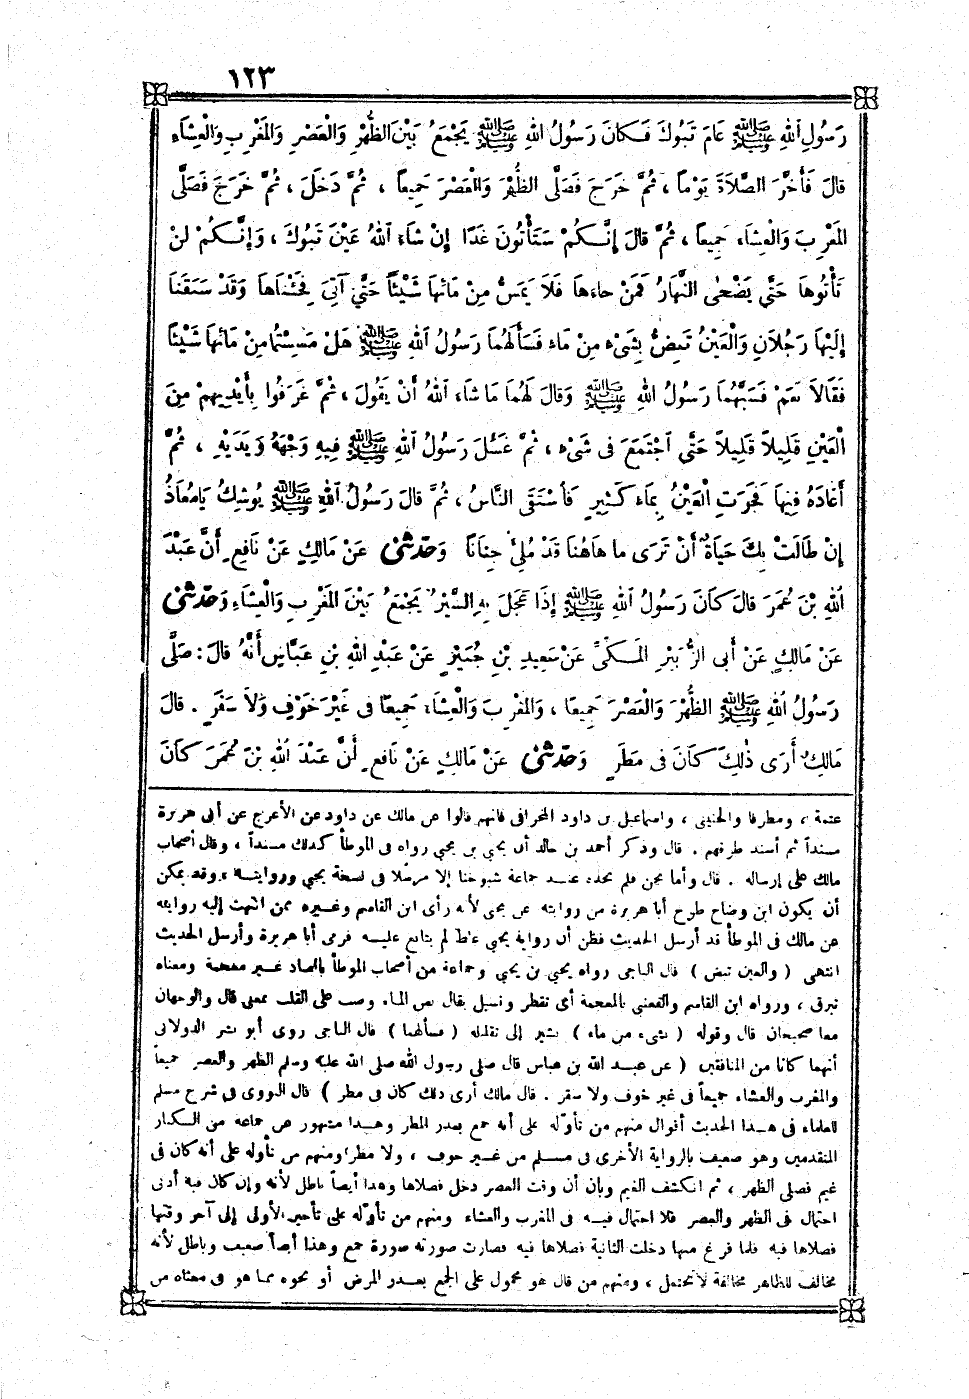 ١٢٣
رَسُولِ اللهِ ﷺ عَامَ تَبُوكَ فَكانَ رَسُولُ اللهِ ﷺ يَجْمَعُ بَيْنَ الظُّهْرِ وَالْعَصْرِ وَالْمَغْرِبِ وَالْعِشَاءِ
قالَ فَأَخَّرَ الصَّلَاةَ يَوْمًا ، ثُمَّ خَرَجَ فَصَلَّى الظُّهْرَ وَالْعَصْرَ جَمِيعاً ، ثُمَّ دَخَلَ ، ثُمَّ خَرَجَ فَصَلَّى
المَغْرِبَ وَالْعِشَاءَ جَمِيعاً ، ثُمَّ قالَ إِنَّكُمْ سَتَأْتُونَ غَدًا إِنْ شَاءَ اللهُ عَيْنَ تَبُوكَ ، وَإِنَّكُمْ لَنْ
تَأْتُوهَا حَتَّى يَضْحَى النَّهَارُ فَمَنْ جَاءَهَا فَلَا يَمَسَّ مِنْ مَائِهَا شَيْئًا حَتَّى آتِىَ فَجِئْنَاهَا وَقَدْ سَبَقَنَا
إِلَيْهَا رَجُلَانِ وَالْعَيْنُ تَبِضُّ بِشَىْءٍ مِنْ مَاءٍ فَسَأَلَهُمَا رَسُولُ اللهِ ﷺ هَلْ مَسِسْتُمَا مِنْ مَائِهَا شَيْئًا
فَقَالَا نَعَمْ فَسَبَّهُمَا رَسُولُ اللهِ ﷺ وَقالَ لَهُمَا مَا شَاءَ اللهُ أَنْ يَقُولَ ، ثُمَّ غَرَفُوا بِأَيْدِيهِمْ مِنَ
الْعَيْنِ قَلِيلاً قَلِيلاً حَتَّى اجْتَمَعَ فى شَىْءٍ ، ثُمَّ غَسَلَ رَسُولُ اللهِ ﷺ فِيهِ وَجْهَهُ وَيَدَيْهِ ، ثُمَّ
أَعَادَهُ فِيهَا فَجَرَتِ الْعَيْنُ بِمَاءٍ كَثِيرٍ فَاسْتَقَى النَّاسُ ، ثُمَّ قالَ رَسُولُ اللهِ ﷺ يُوشِكُ يَا مُعَاذُ
إِنْ طَالَتْ بِكَ حَيَاةٌ أَنْ تَرَى ما هَاهُنَا قَدْ مُلِئَ جِنَانًا وَحَدَّثَنى عَنْ مَالِكٍ عَنْ نَافِعٍ أَنَّ عَبْدَ
اللهِ بْنَ عُمَرَ قالَ كَانَ رَسُولُ اللهِ ﷺ إِذَا عَجِلَ بِهِ السَّيْرُ يَجْمَعُ بَيْنَ المَغْرِبِ وَالْعِشَاءِ وَحَدَّثَنى
عَنْ مَالِكٍ عَنْ أَبِى الزُّبَيْرِ الْمَكِّىِّ عَنْ سَعِيدِ بْنِ جُبَيْرٍ عَنْ عَبْدِ اللهِ بْنِ عَبَّاسٍ أَنَّهُ قالَ : صَلَّى
رَسُولُ اللهِ ﷺ الظُّهْرَ وَالْعَصْرَ جَمِيعًا ، وَالمَغْرِبَ وَالْعِشَاءَ جَمِيعًا فى غَيْرِ خَوْفٍ وَلَا سَفَرٍ . قالَ
مَالِكٌ أُرَى ذٰلِكَ كانَ فِى مَطَرٍ وَحَدَّثَنى عَنْ مَالِكٍ عَنْ نَافِعٍ أَنَّ عَبْدَ اللهِ بْنَ عُمَرَ كَانَ
عثمة ، ومطرفا والحنينى ، واسماعيل بن داود المخراقى فانهم قالوا عن مالك عن داود عن الأعرج عن أبى هريرة
مسنداً ثم أسند طرقهم . قال وذكر أحمد بن خالد أن يحيى بن يحيى رواه فى الموطأ كذلك مسنداً ، وقال أصحاب
مالك على إرساله . قال وأما نحن فلم نجده عند جماعة شيوخنا إلا مرسلا فى نسخة يحيى وروايته ، وقد يمكن
أن يكون ابن وضاح طرح أبا هريرة من روايته عن يحيى لأنه رأى ابن القاسم وغيره ممن انتهت إليه روايته
عن مالك فى الموطأ قد أرسل الحديث فظن أن رواية يحيى غلط لم يتابع عليه فرمى أبا هريرة وأرسل الحديث
انتهى ( والعين تبض ) قال الباجى رواه يحيى بن يحيى وجماعة من أصحاب الموطأ بالصاد غير معجمة ومعناه
تبرق ، ورواه ابن القاسم والقعنبى بالمعجمة أى تقطر وتسيل يقال بض الماء وضب على القلب بمعنى قال والوجهان
معا صحيحان قال وقوله ( بشىء من ماء ) يشير إلى تقليله ( فسألهما ) قال الباجى روى أبو بشر الدولابى
أنهما كانا من المنافقين ( عن عبد الله بن عباس قال صلى رسول الله صلى الله عليه وسلم الظهر والعصر جميعاً
والمغرب والعشاء جميعاً فى غير خوف ولا سفر . قال مالك أرى ذلك كان فى مطر ) قال النووى فى شرح مسلم
للعلماء فى هذا الحديث أقوال منهم من تأوّله على أنه جمع بعذر المطر وهذا مشهور عن جماعة من الكبار
المتقدمين وهو ضعيف بالرواية الأخرى فى مسلم من غير خوف ، ولا مطر ومنهم من تأوله على أنه كان فى
غيم فصلى الظهر ، ثم انكشف الغيم وبان أن وقت العصر دخل فصلاها وهذا أيضاً باطل لأنه وإن كان فيه أدنى
احتمال فى الظهر والعصر فلا احتمال فيه فى المغرب والعشاء ومنهم من تأوّله على تأخير الأولى إلى آخر وقتها
فصلاها فيه فلما فرغ منها دخلت الثانية فصلاها فيه فصارت صورته صورة جمع وهذا أيضاً ضعيف وباطل لأنه
مخالف للظاهر مخالفة لا تحتمل ، ومنهم من قال هو محمول على الجمع بعذر المرض أو نحوه مما هو فى معناه من